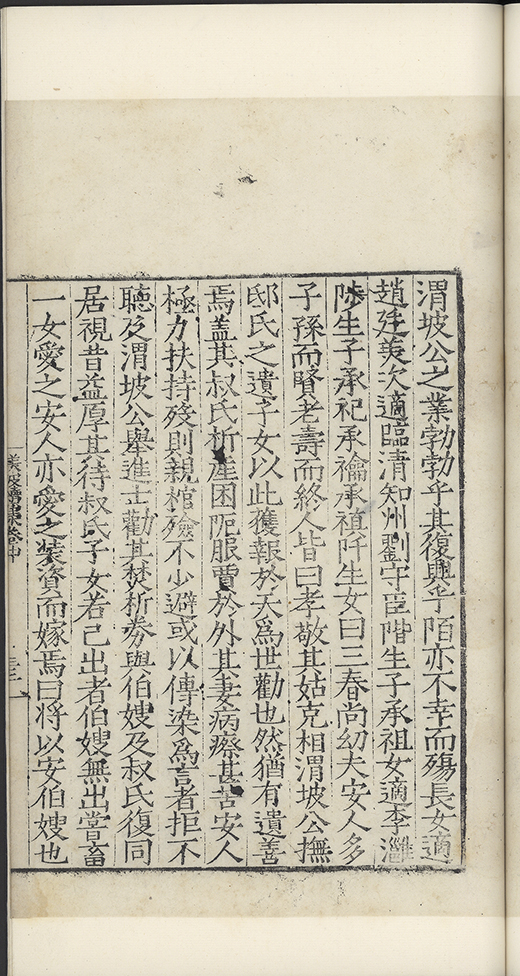 渭坡公之業勃勃乎其復興乎陌亦不幸而殤長女適
趙廷羙次適臨清知州劉守臣階生子承祖女適李灉
陟生子承祀承禴承禃阡生女曰三春尚幼夫安人多
子孫而賢老壽而終人皆曰孝敬其姑克相渭坡公撫
邸氏之遺子女以此獲報於天爲世勸也然猶有遺善
焉盖其叔氏析產困阨服賈於外其妻病瘵甚苦安人
極力扶持殁則親棺殮不少避或以傳染爲言者拒不
聴及渭坡公舉進士勸其焚析券與伯嫂及叔氏復同
居視昔益厚其待叔氏子女若己出者伯嫂無出嘗畜
一女愛之安人亦愛之裝資而嫁焉曰将以安伯嫂也